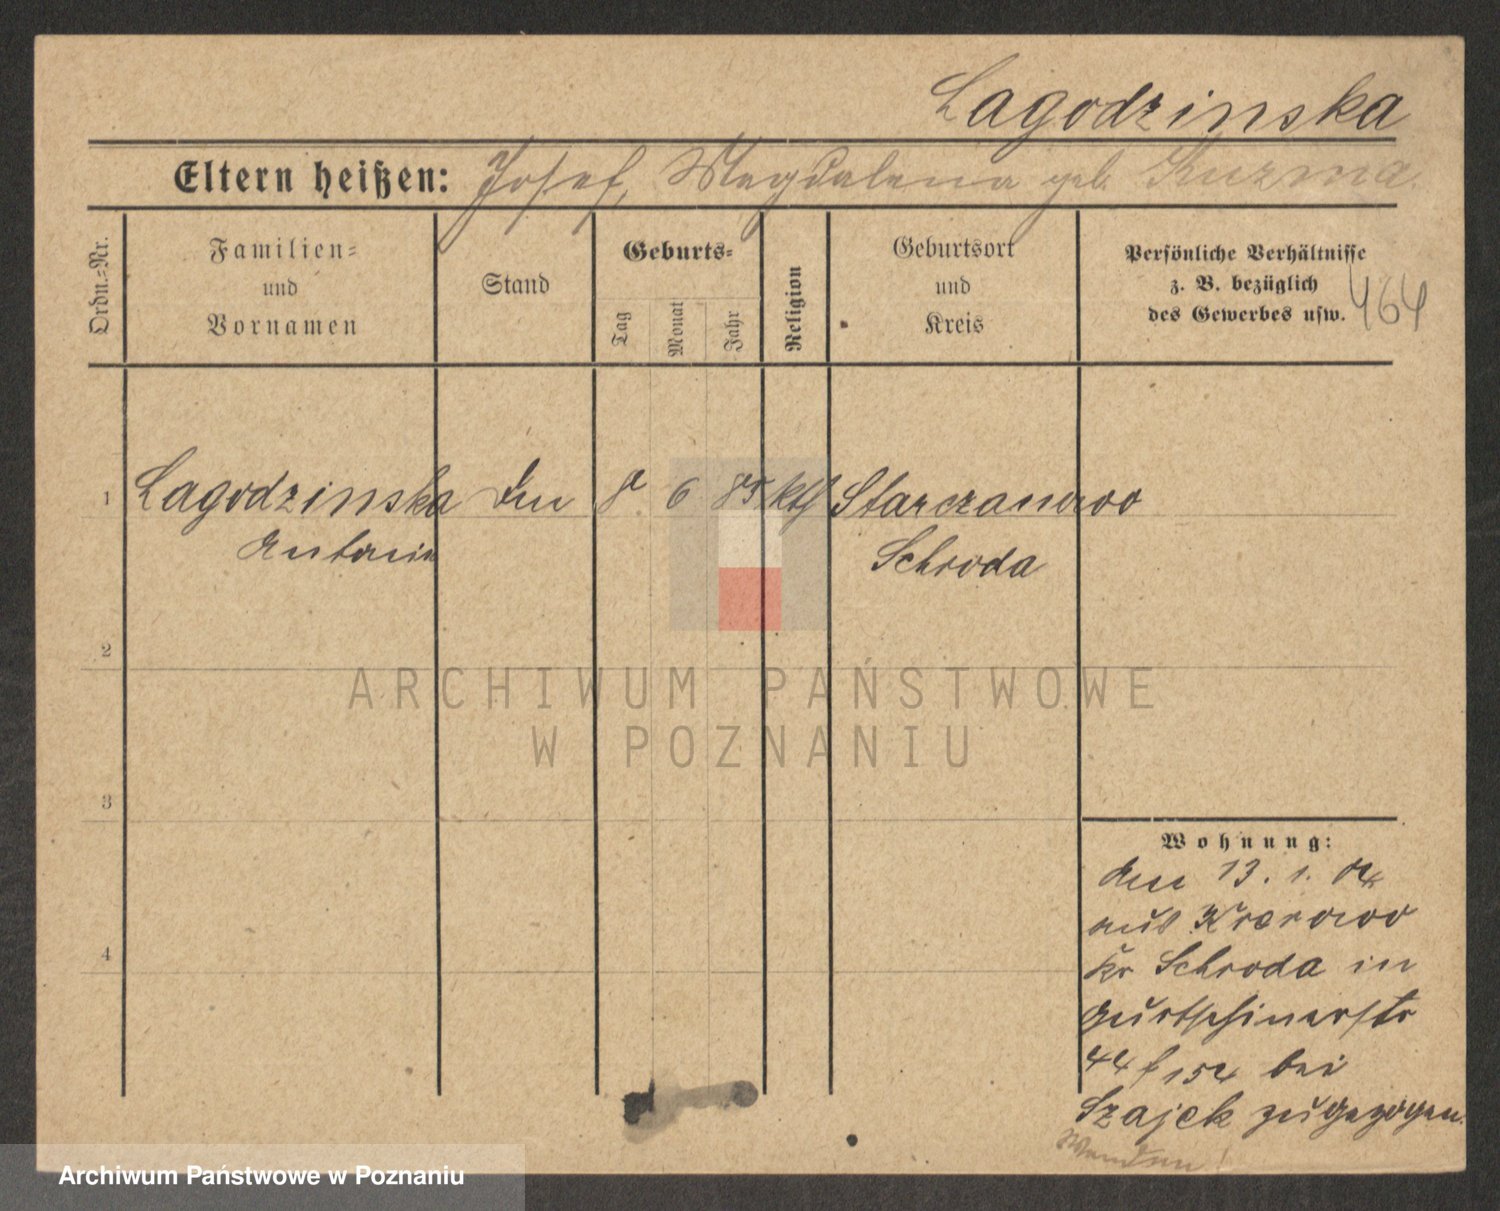 Lagodzinska
Eltern heißen: Josef, Magdalena geb. Kuzma.
Ordn.=Nr.
Familien=
und
Vornamen
Stand
Geburts=
Tag
Monat
Jahr
Religion
Geburtsort
und
Kreis
Persönliche Verhältnisse
z. B. bezüglich
des Gewerbes usw.
464
1 Lagodzinska 8 6 85 kth Starczanowo
Antonie Schroda
2
3
4
Wohnung:
Am 13. 1. 04
aus Krerowo
Kr Schroda in
Gurtschinerstr
44 f 154 bei
Szajek zugezogen.
Wenden!
ARCHIWUM PAŃSTWOWE
W POZNANIU
Archiwum Państwowe w Poznaniu